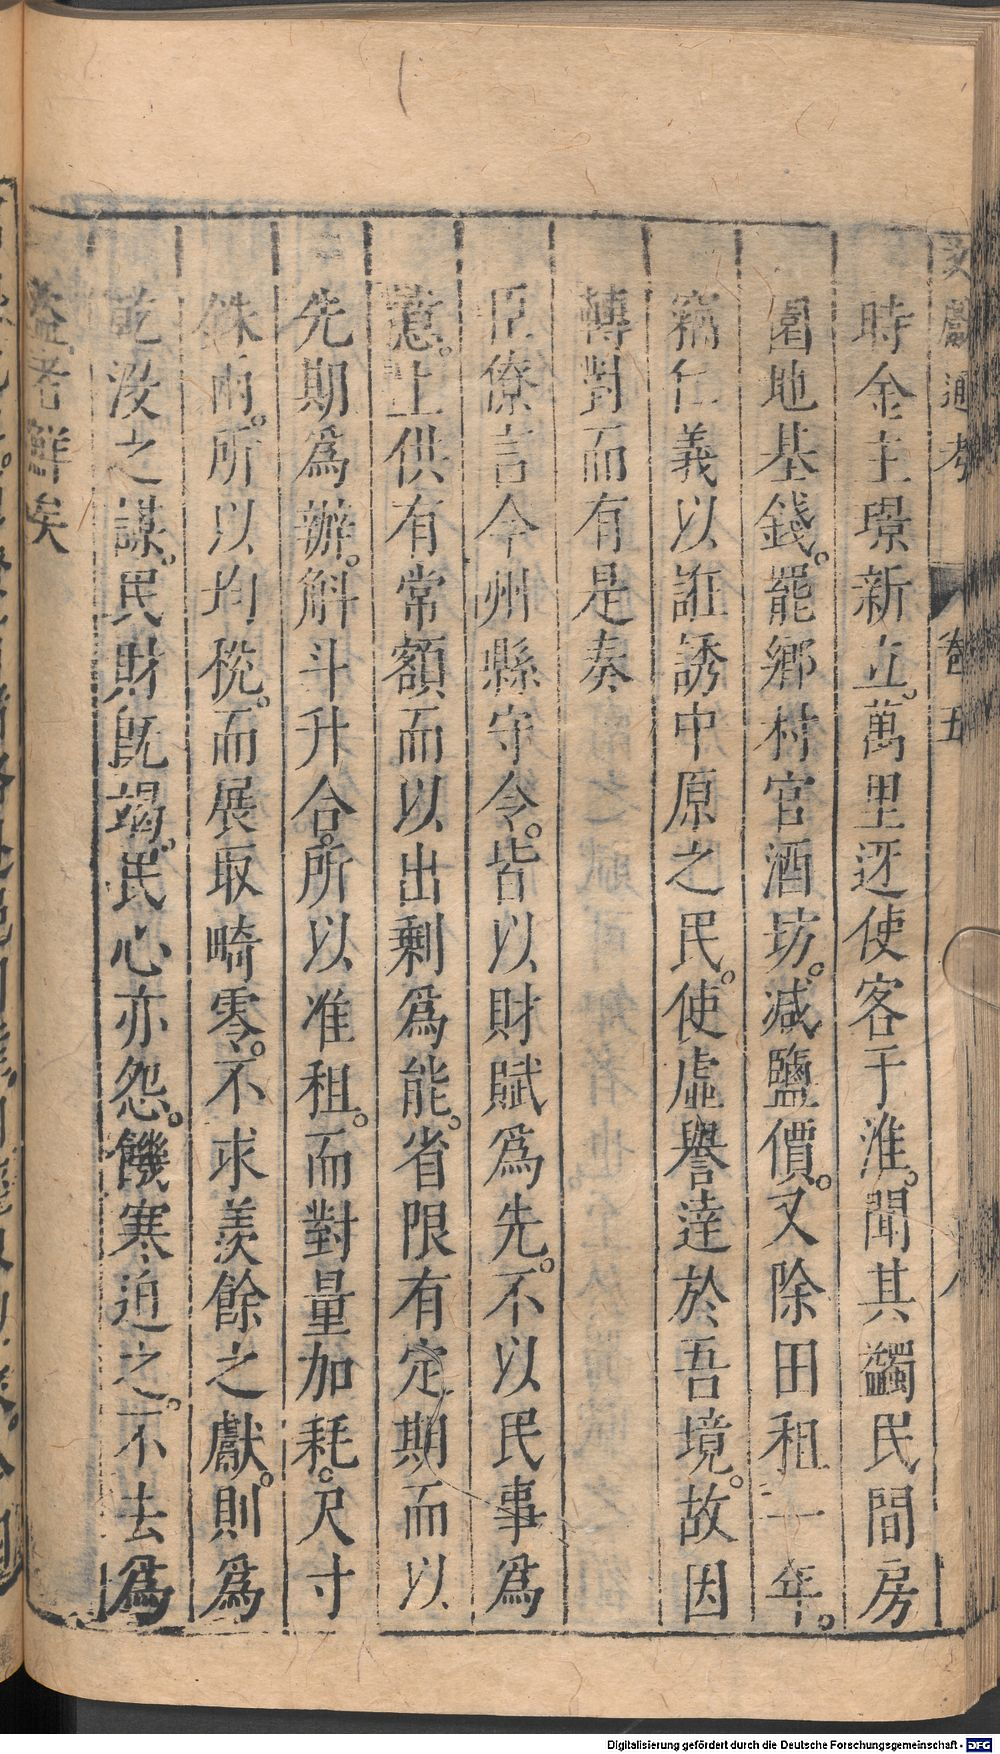 文獻通考 卷五
時金主璟新立。萬里迓使客于淮。聞其蠲民間房
園地基錢。罷鄉村官酒坊。減鹽價。又除田租一年。
竊仁義以誑誘中原之民。使虛譽達於吾境。故因
轉對而有是奏
臣僚言今州縣守令。皆以財賦爲先。不以民事爲
意。上供有常額而以出剩爲能。省限有定期而以
先期爲辦。斛斗升合。所以准租。而對量加耗。尺寸
銖兩。所以均稅。而展取畸零。不求羨餘之獻。則爲
乾沒之謀。民財既竭。民心亦怨。饑寒迫之。不去爲
盜者鮮矣
Digitalisierung gefördert durch die Deutsche Forschungsgemeinschaft - DFG